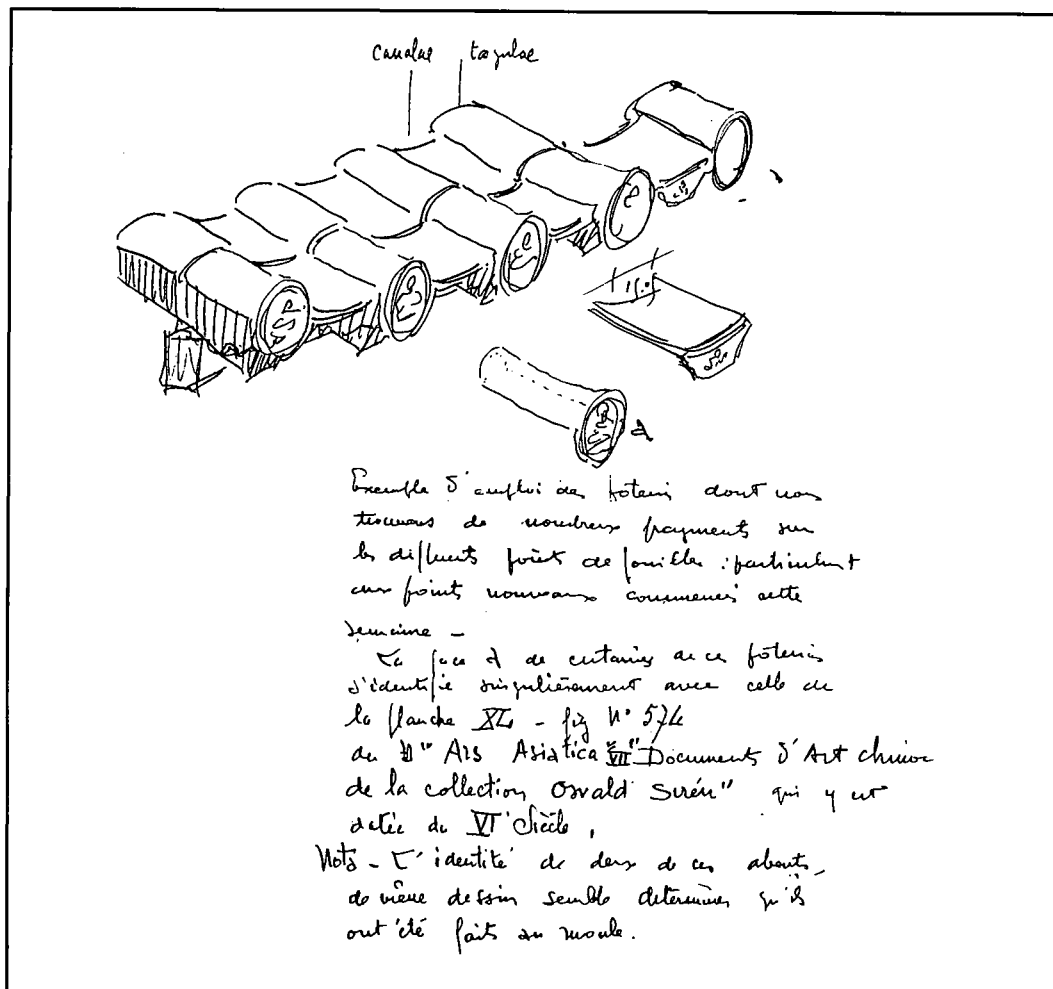 canalae tegulae
15.05
A
Exemple d'emploi des poteries dont nous
trouvons de nombreux fragments sur
les différents points de fouilles : particulier t
aux points nouveaux commencés cette
semaine -
La face A de certaines de ces poteries
s'identifie singulièrement avec celle de
la planche XL - fig N° 574
du "Ars Asiatica VII" Documents d'Art chinois
de la collection Osvald Sirén" qui y est
datée du VI° Siècle,
Nota - L'identité de deux de ces abouts,
de même dessin semble déterminer qu'ils
ont été faits au moule.